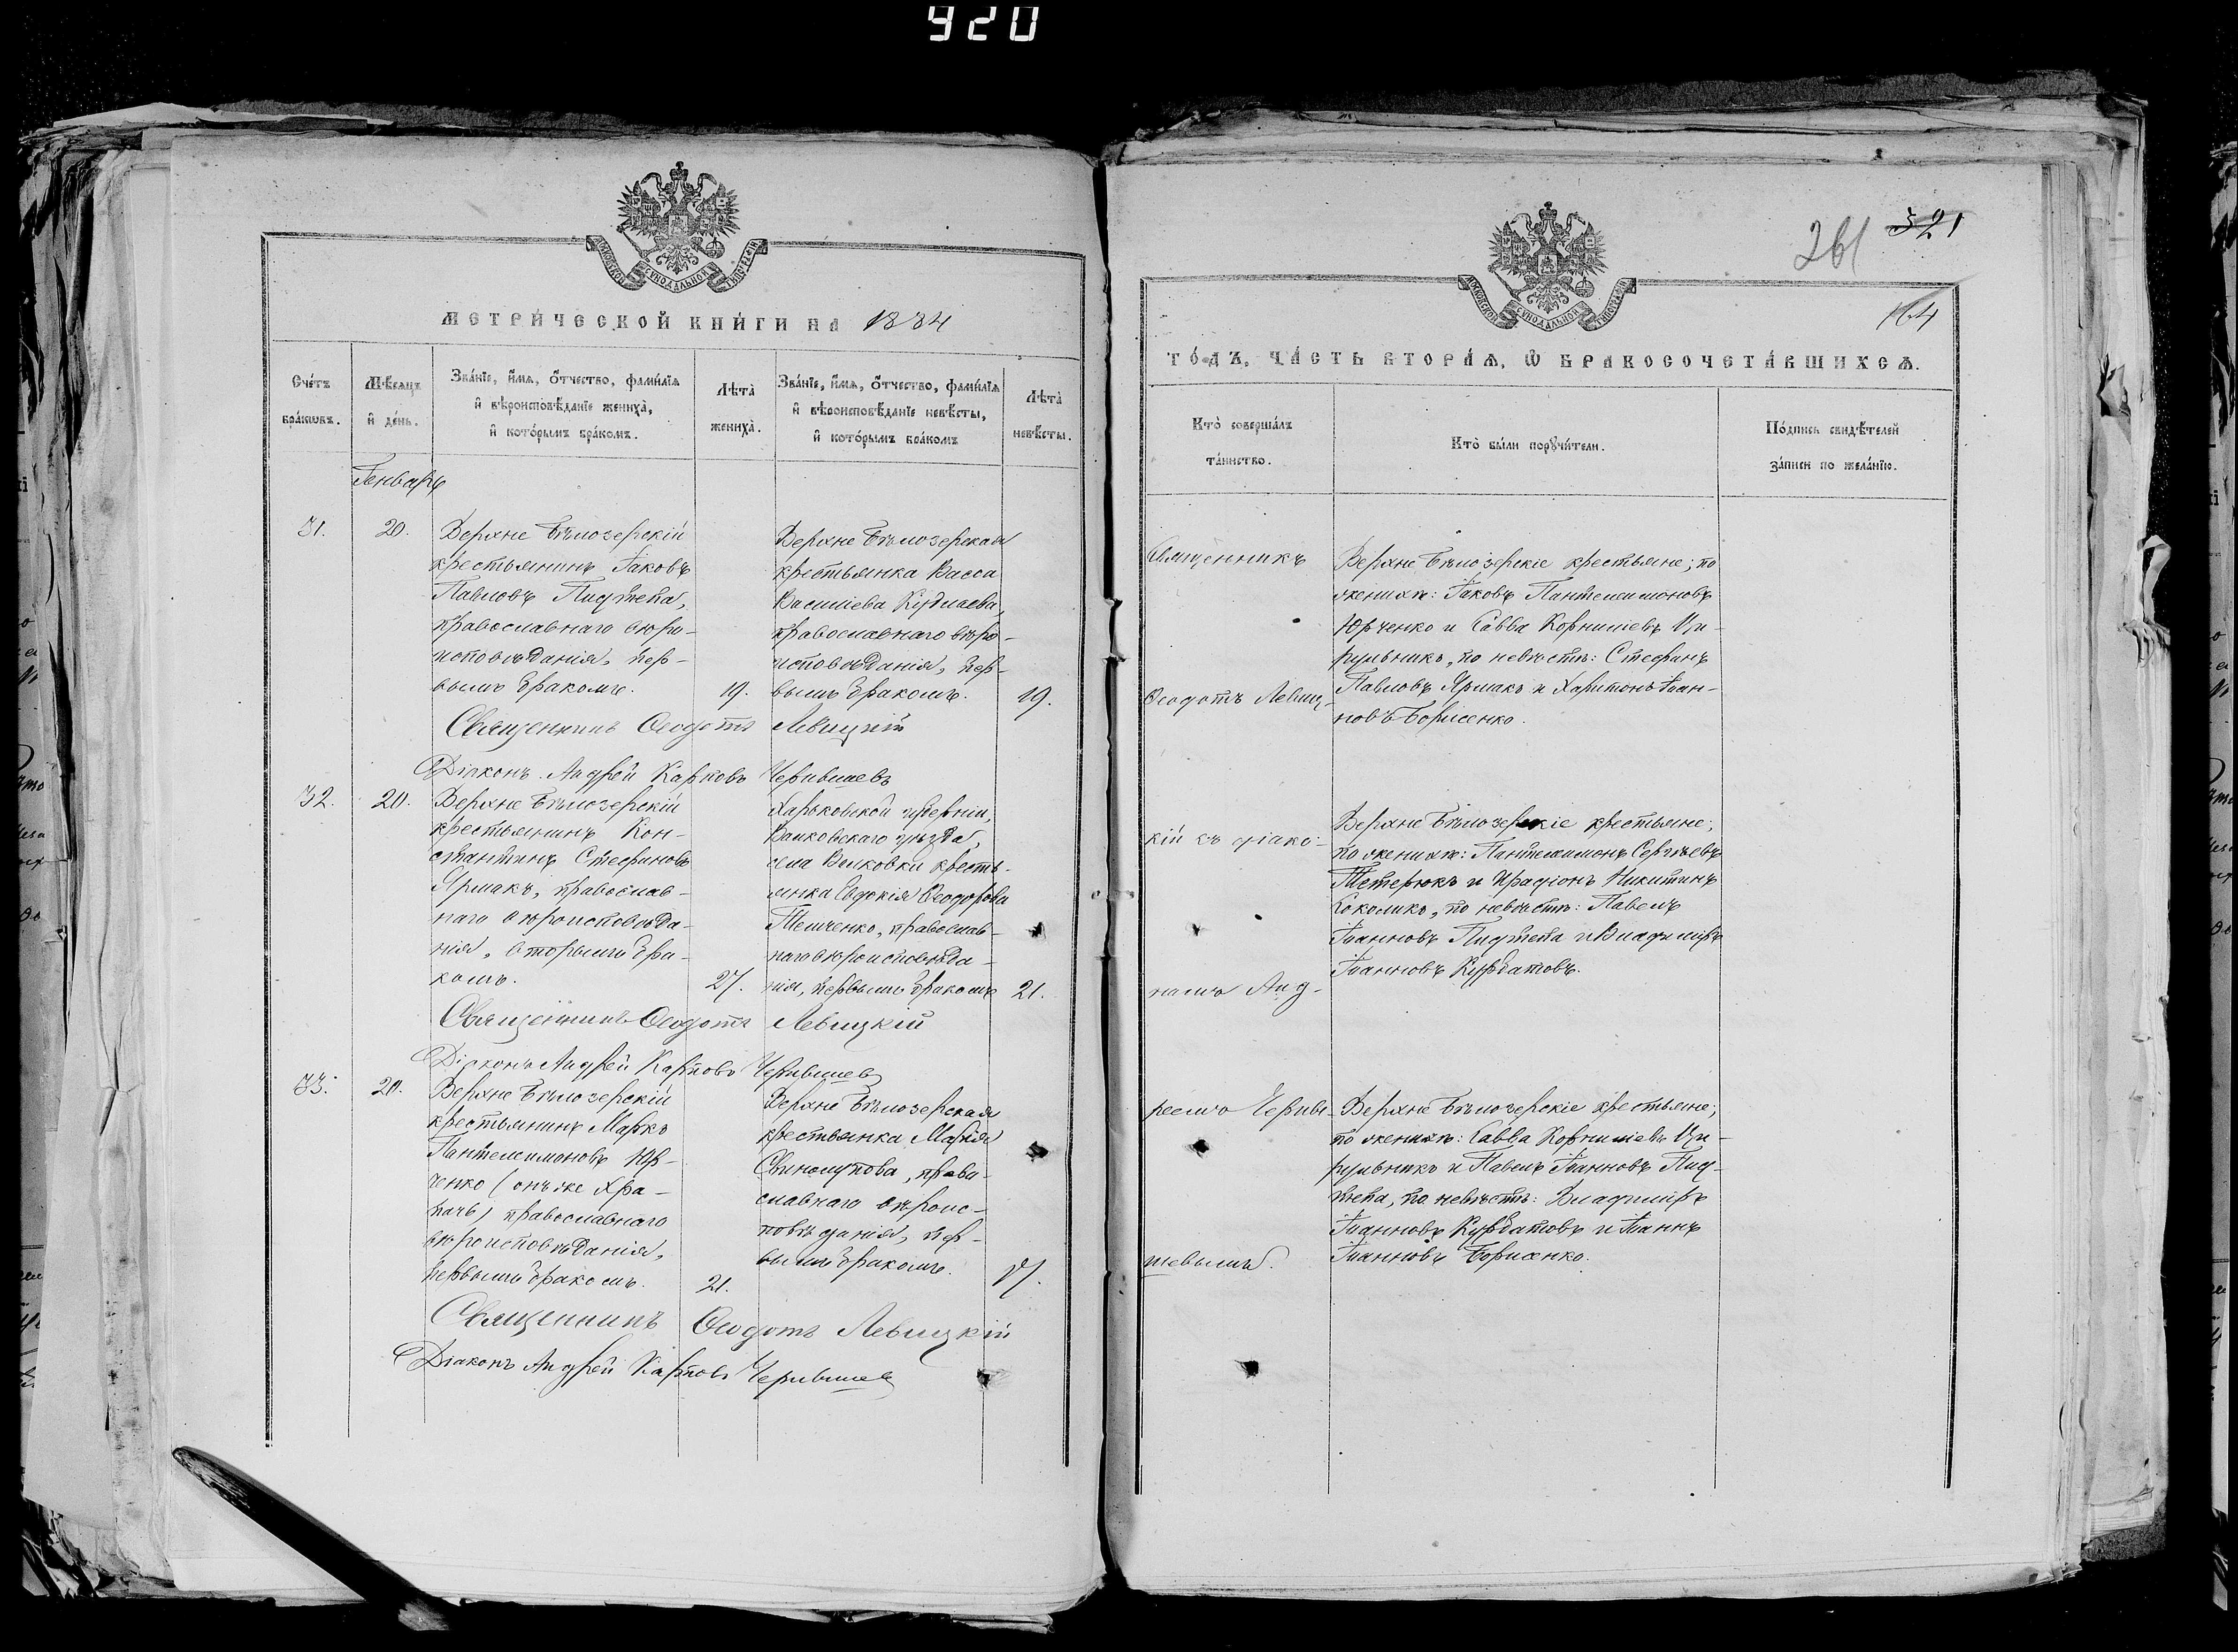 920
МОСКОВСКОЙ СѴНОДАЛЬНОЙ ТИПОГРАФІИ
МЕТРИ́ЧЕСКОЙ КНИ́ГИ НА 1884
Сче́тъ бра́кѡвъ.
Мѣ́сяцъ и҆ де́нь.
Зва́нїе, и҆́мѧ, ѻ҆́тчество, фами́лїѧ и҆ вѣроисповѣ́данїе жениха̀, и҆ кото́рымъ бра́комъ.
Лѣта̀ жениха̀.
Зва́нїе, и҆́мѧ, ѻ҆́тчество, фами́лїѧ и҆ вѣроисповѣ́данїе невѣ́сты, и҆ кото́рымъ бра́комъ
Лѣта̀ невѣ́сты.
Генварь
31.
20.
Верхне Бѣлозерскій
крестьянинъ Іаковъ
Павловъ Пидтепа,
православнаго вѣро-
исповѣданія, пер-
вымъ бракомъ.
19.
Верхне Бѣлозерская
крестьянка Васса
Василіева Кудлаева,
православнаго вѣро-
исповѣданія, пер-
вымъ бракомъ.
19.
Священникъ Ѳеодотъ Левицкій
Діаконъ Андрей Карповъ Чернышевъ
32.
20.
Верхне Бѣлозерскій
крестьянинъ Кон-
стантинъ Стефановъ
Ярмакъ, православ-
наго вѣроисповѣда-
нія, вторымъ бра-
комъ.
27.
Харьковской губерніи,
Валковскаго уѣзда,
села Волковки кресть-
янка Евдокія Ѳеодорова
Темченко, православ-
наго вѣроисповѣда-
нія, первымъ бракомъ
21.
Священникъ Ѳеодотъ Левицкій
Діаконъ Андрей Карповъ Чернышевъ
33.
20.
Верхне Бѣлозерскій
крестьянинъ Марко
Пантелеимоновъ Юр-
ченко (онъ же Хра-
пачъ) православнаго
вѣроисповѣданія,
первымъ бракомъ.
21.
Верхне Бѣлозерская
крестьянка Марія
Свинолупова, право-
славнаго вѣроис-
повѣданія, пер-
вымъ бракомъ.
17.
Священникъ Ѳеодотъ Левицкій
Діаконъ Андрей Карповъ Чернышевъ
261
321
164
МОСКОВСКОЙ СѴНОДАЛЬНОЙ ТИПОГРАФІИ
ГО́ДЪ, ЧА́СТЬ ВТОРА́Ѧ, Ѡ҆ БРАКОСОЧЕТА́ВШИХСѦ.
Кто̀ соверша́лъ та́инство.
Кто̀ бы́ли порꙋчи́тели.
По́дпись свидѣ́телей за́писи по жела́нїю.
Священникъ
Ѳеодотъ Левиц-
кій съ діако-
номъ Анд-
реемъ Черны-
шевымъ.
Верхне Бѣлозерскіе крестьяне; по
женихѣ: Іаковъ Пантелеимоновъ
Юрченко и Савва Корниліевъ Ци-
рульникъ, по невѣстѣ: Стефанъ
Павловъ Ярмакъ и Харитонъ Іоан-
новъ Борисенко.
Верхне Бѣлозерскіе крестьяне;
по женихѣ: Пантелеимонъ Сергѣевъ
Тетерюкъ и Иродіонъ Никитинъ
Соколикъ, по невѣстѣ: Павелъ
Іоанновъ Пидтепа и Владиміръ
Іоанновъ Курбатовъ.
Верхне Бѣлозерскіе крестьяне;
по женихѣ: Савва Корниліевъ Ци-
рульникъ и Павелъ Іоанновъ Пид-
тепа, по невѣстѣ: Владиміръ
Іоанновъ Курбатовъ и Іоаннъ
Іоанновъ Борисенко.